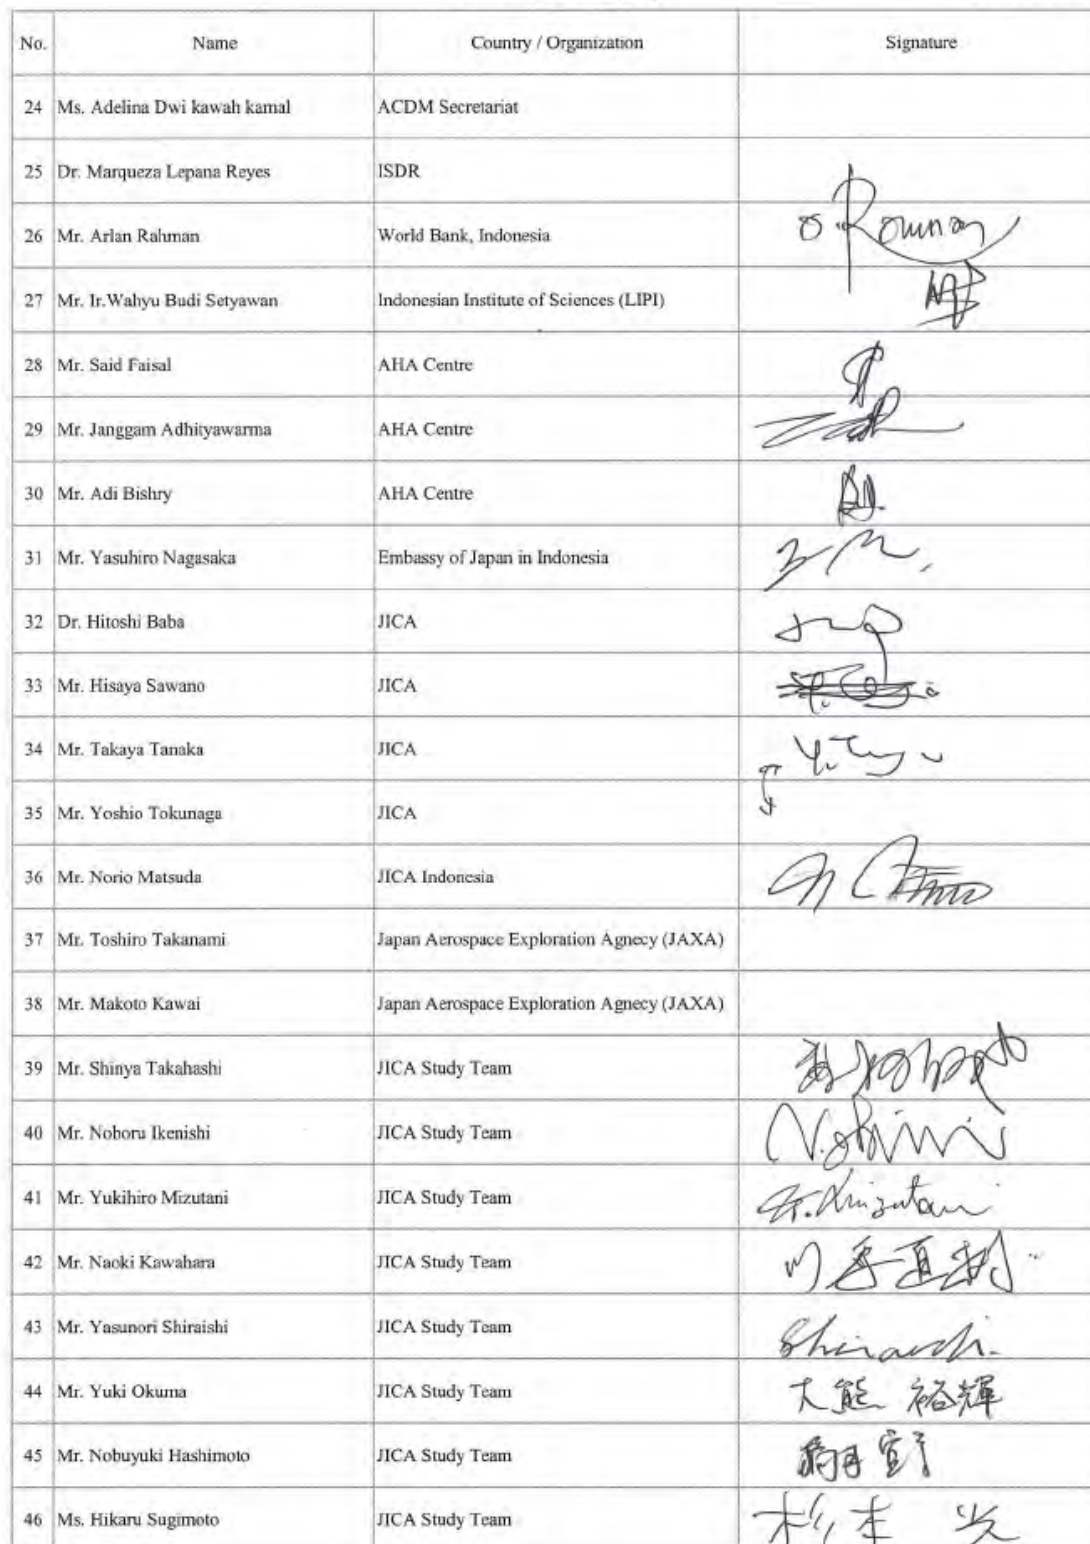 No. Name Country / Organization Signature
24 Ms. Adelina Dwi kawah kamal ACDM Secretariat
25 Dr. Marqueza Lepana Reyes ISDR
26 Mr. Arlan Rahman World Bank, Indonesia
27 Mr. Ir.Wahyu Budi Setyawan Indonesian Institute of Sciences (LIPI)
28 Mr. Said Faisal AHA Centre
29 Mr. Janggam Adhityawarma AHA Centre
30 Mr. Adi Bishry AHA Centre
31 Mr. Yasuhiro Nagasaka Embassy of Japan in Indonesia
32 Dr. Hitoshi Baba JICA
33 Mr. Hisaya Sawano JICA
34 Mr. Takaya Tanaka JICA
35 Mr. Yoshio Tokunaga JICA
36 Mr. Norio Matsuda JICA Indonesia
37 Mr. Toshiro Takanami Japan Aerospace Exploration Agnecy (JAXA)
38 Mr. Makoto Kawai Japan Aerospace Exploration Agnecy (JAXA)
39 Mr. Shinya Takahashi JICA Study Team
40 Mr. Noboru Ikenishi JICA Study Team
41 Mr. Yukihiro Mizutani JICA Study Team
42 Mr. Naoki Kawahara JICA Study Team
43 Mr. Yasunori Shiraishi JICA Study Team
44 Mr. Yuki Okuma JICA Study Team 大熊 裕輝
45 Mr. Nobuyuki Hashimoto JICA Study Team
46 Ms. Hikaru Sugimoto JICA Study Team 杉本 光